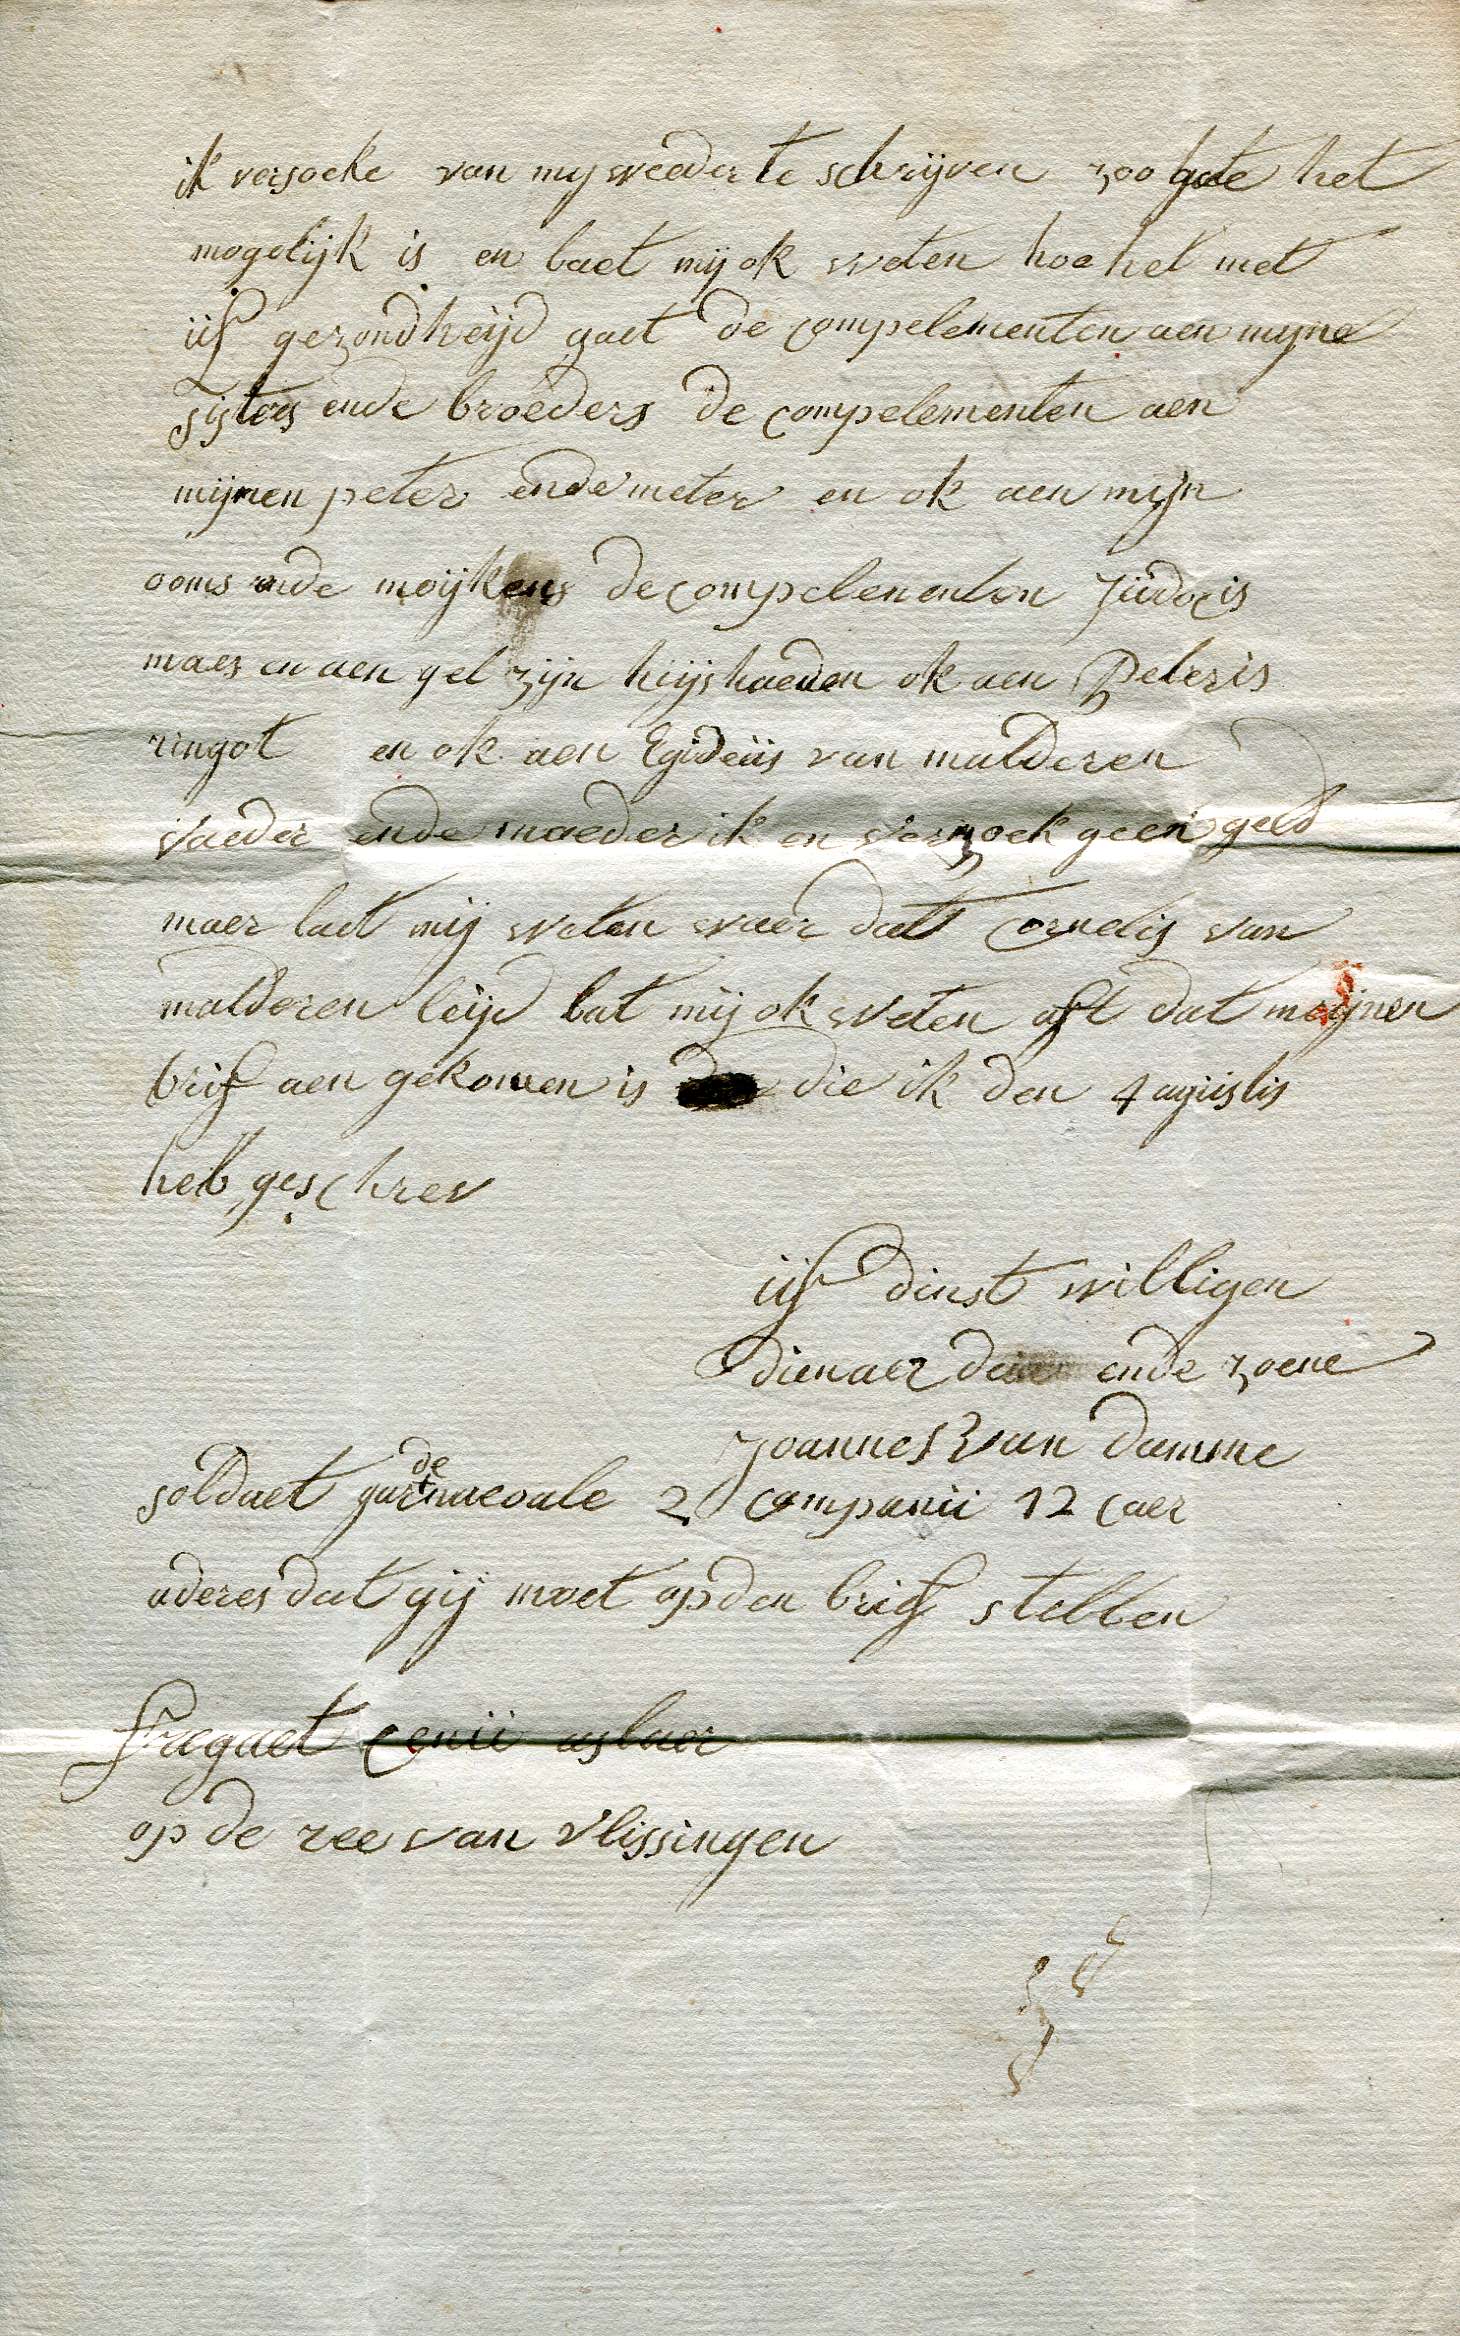 ik versoeke van mij weeder te schrijven zoo hate het
mogelijk is en laet mij ok weten hoe het met
üß gezondheijd gaet de compelementen aen mijne
sijsters ende broeders de compelementen aen
mijnen peter ende meter en ok aen mijn
ooms ende moijkens de compelementen Jüdocis
maes en aen gel zijn hüijshaeuden ok aen Peteris
ringot en ok aen Egideüs van malderen
vaeder ende maeder ik en verzoek geen geld
maer laet mij weten waer dat Cornelis van
malderen leijd lat mij ok weten oft dat meijnen
brif aen gekomen is die ik den 4 agüistis
heb geschrev
üß dinst willigen
dienaer ende zoene
joannes van damme
soldaet garde nacoale 2 companii 12 caer
aderes dat gij moet op den brif stellen
Fregaet cenii aslaer
op de zee van vlissingen